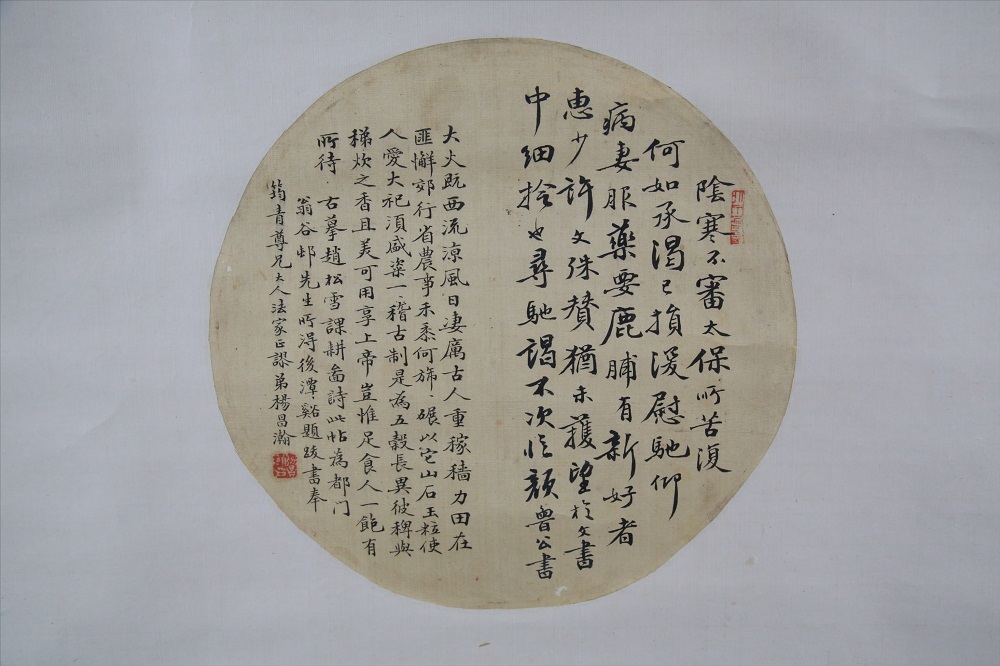 陰寒不審太保所苦復
何如承渴已損深慰馳仰
病妻服藥要鹿脯有新好者
惠少許文殊贊猶未獲望於文書
中細捨也尋馳謁不次臨顏魯公書
大火既西流涼風日淒厲古人重稼穡力田在
匪懈郊行省農事禾黍何旆〻碾以它山石玉粒使
人愛大祀須盛粢一〻稽古制是為五穀長異彼稗與
稊炊之香且美可用享上帝豈惟足食人一飽有
所待 古摹趙松雪課耕圖詩此帖為都门
翁谷邨先生所得後潭谿題跋書奉
筠青尊兄大人法家正謬弟楊昌瀚